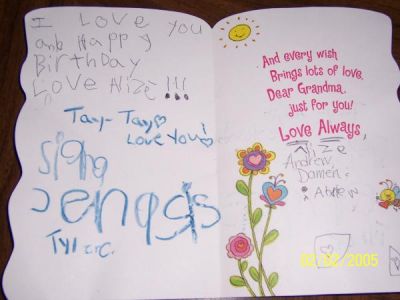 I Love you
and Happy
Birthday
Love Nize!!!
Tay-Tay
Love You!
Tyler C.
And every wish
Brings lots of love,
Dear Grandma,
just for you!
Love Always,
Nize
Andrew
Damen
02/02/2005